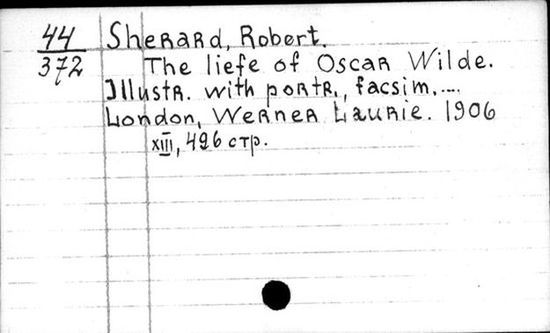 44 Sherard, Robert.
372 The liefe of Oscar Wilde.
Illustr. with portr., facsim,....
London, Werner Laurie. 1906
XIII, 496 стр.